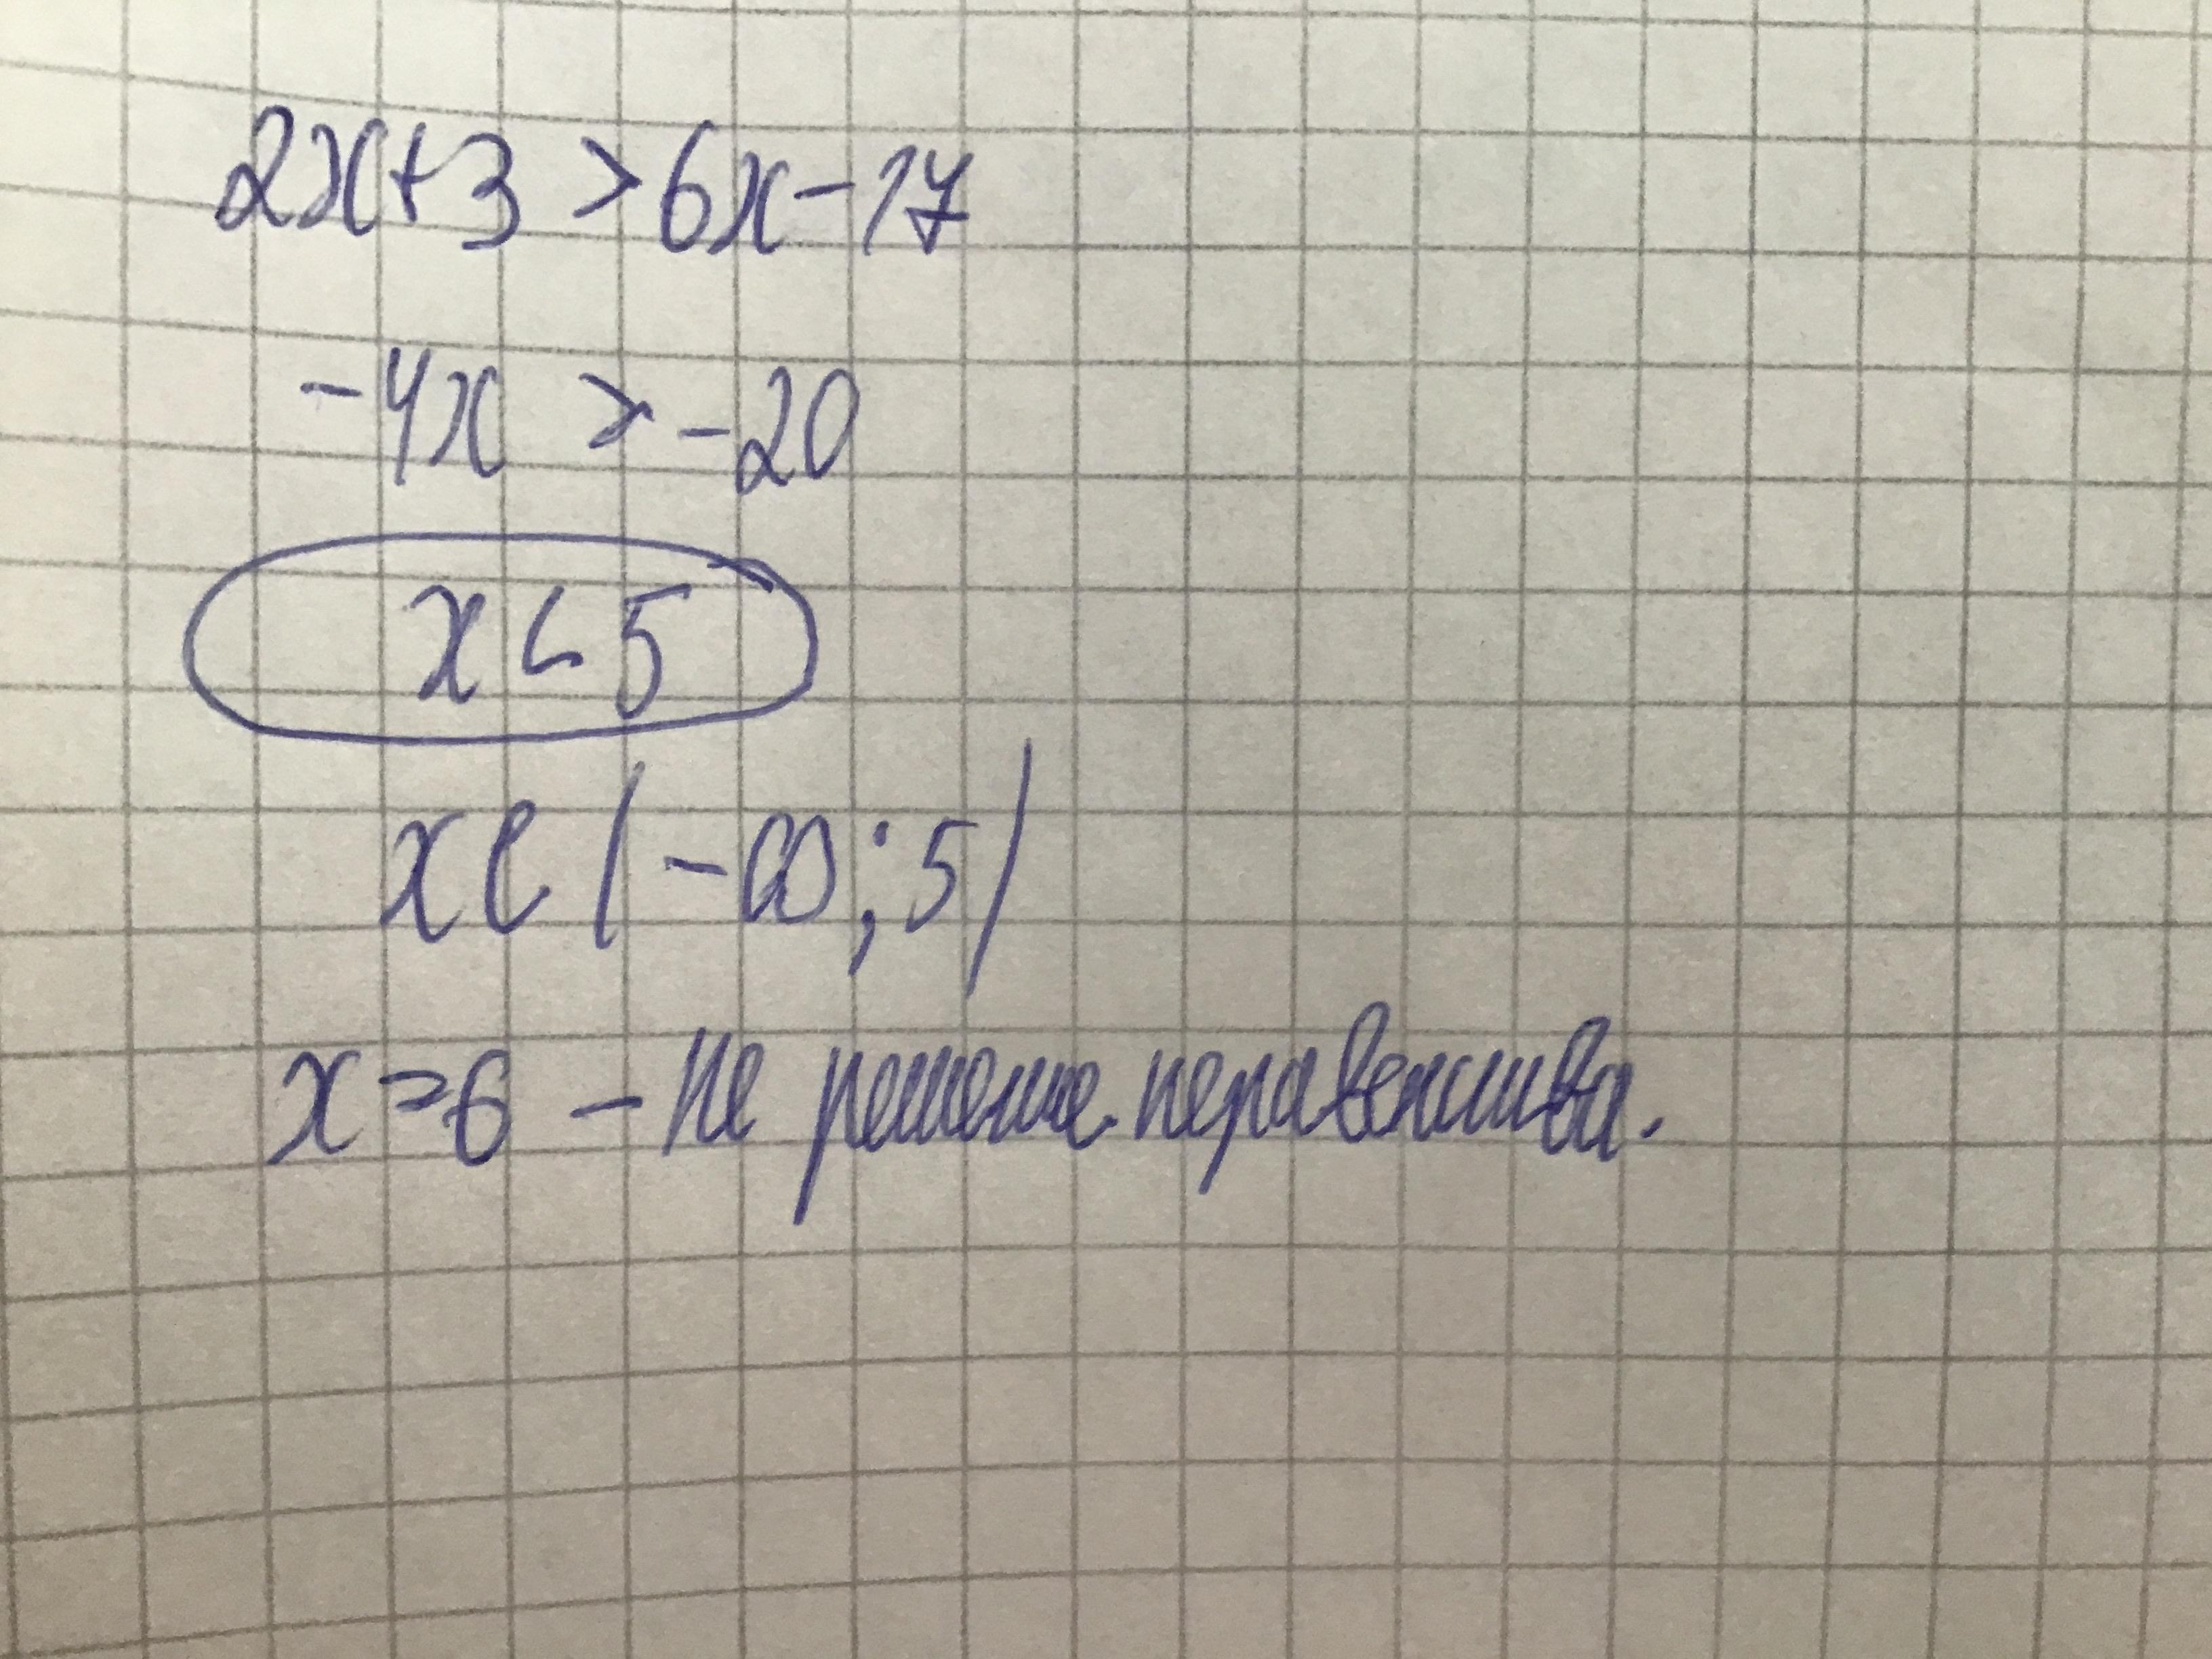 2x+3 > 6x-17
-4x > -20
x < 5
x ∈ (-∞; 5)
x = 6 - не решение неравенства.